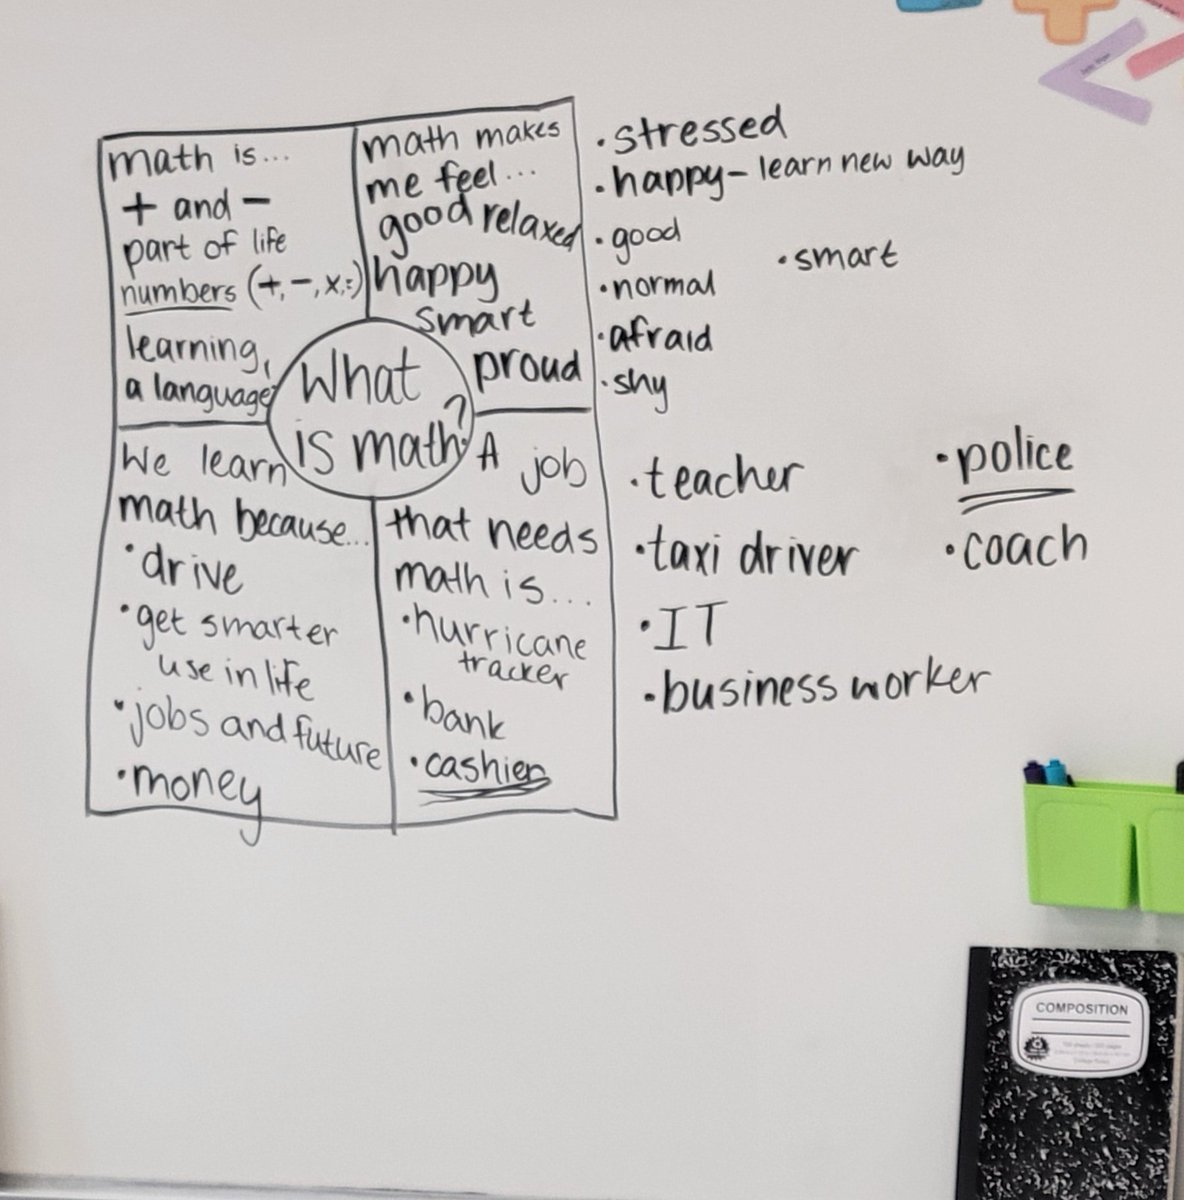 math is...
+ and -
part of life
numbers (+, -, x, ÷)
learning,
a language
math makes
me feel...
good relaxed
happy
smart
proud
• stressed
• happy - learn new way
• good
• smart
• normal
• afraid
• shy
What
is math?
We learn
math because...
• drive
• get smarter
use in life
• jobs and future
• money
A job
that needs
math is...
• hurricane
tracker
• bank
• cashier
• teacher
• taxi driver
• IT
• business worker
• police
• coach
COMPOSITION